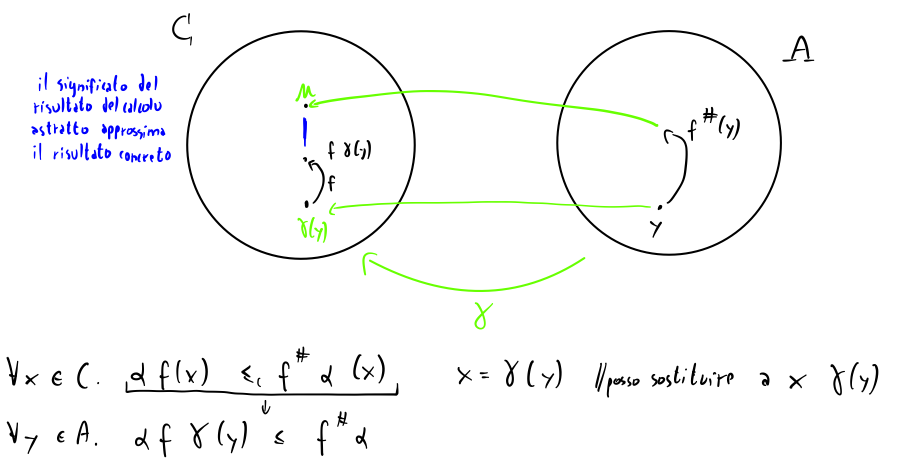 C
A
il significato del
risultato del calcolo
astratto approssima
il risultato concreto
f#(y)
f γ(y)
f
γ(y)
y
γ
∀x ∈ C. α f(x) ≤c f# α (x) x = γ(y) //posso sostituire a x γ(y)
∀y ∈ A. α f γ(y) ≤ f# α